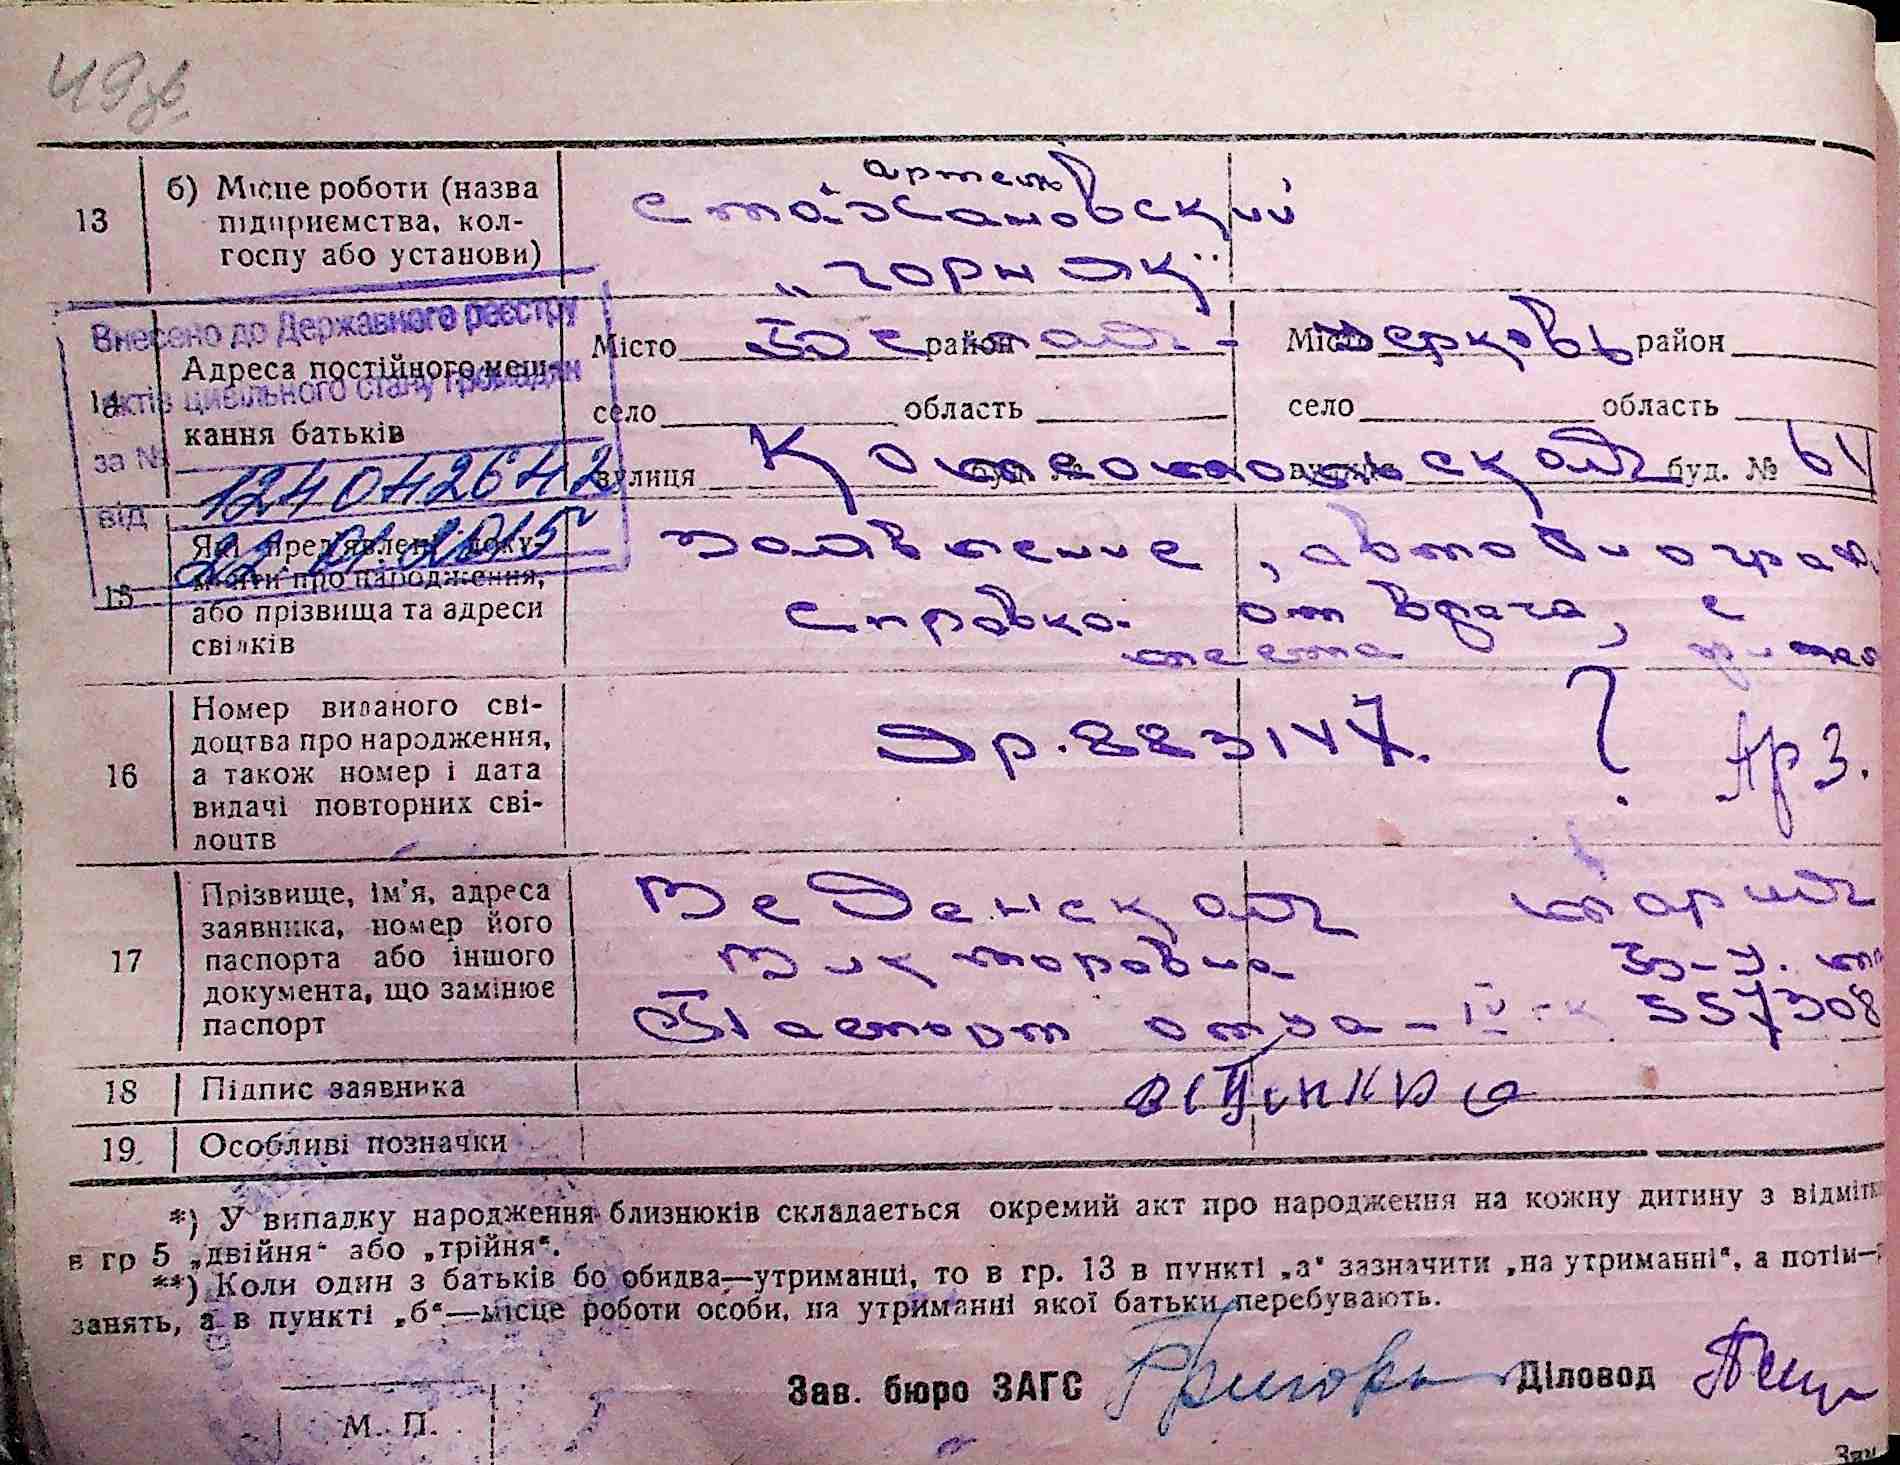 13
б) Місце роботи (назва
підприємства, кол-
госпу або установи)
артель
Стахановский
„горняк"
Внесено до Державного реєстру
актів цивільного стану громадян
за №
124042642
від
22.01.2015
14
Адреса постійного меш-
кання батьків
Місто Белая - район
село область
вулиця буд. №
Місто церковь район
село область
вулиця буд. № 61
15
Які пред'явлені доку-
менти про народження,
або прізвища та адреси
свідків
Заявление, автобиограф
Справка от врача, с
места
16
Номер виданого сві-
доцтва про народження,
а також номер і дата
видачі повторних сві-
доцтв
?
17
Прізвище, ім'я, адреса
заявника, номер його
паспорта або іншого
документа, що замінює
паспорт
Веденская Мария
Викторовна
Паспорт отца -
18
Підпис заявника
19.
Особливі позначки
*) У випадку народження близнюків складається окремий акт про народження на кожну дитину з відмітк
в гр 5 „двійня“ або „трійня“.
**) Коли один з батьків бо обидва—утриманці, то в гр. 13 в пункті „а“ зазначити „на утриманні“, а потім—
занять, а в пункті „б“—місце роботи особи, на утриманні якої батьки перебувають.
Зав. бюро ЗАГС
Діловод
М. П.